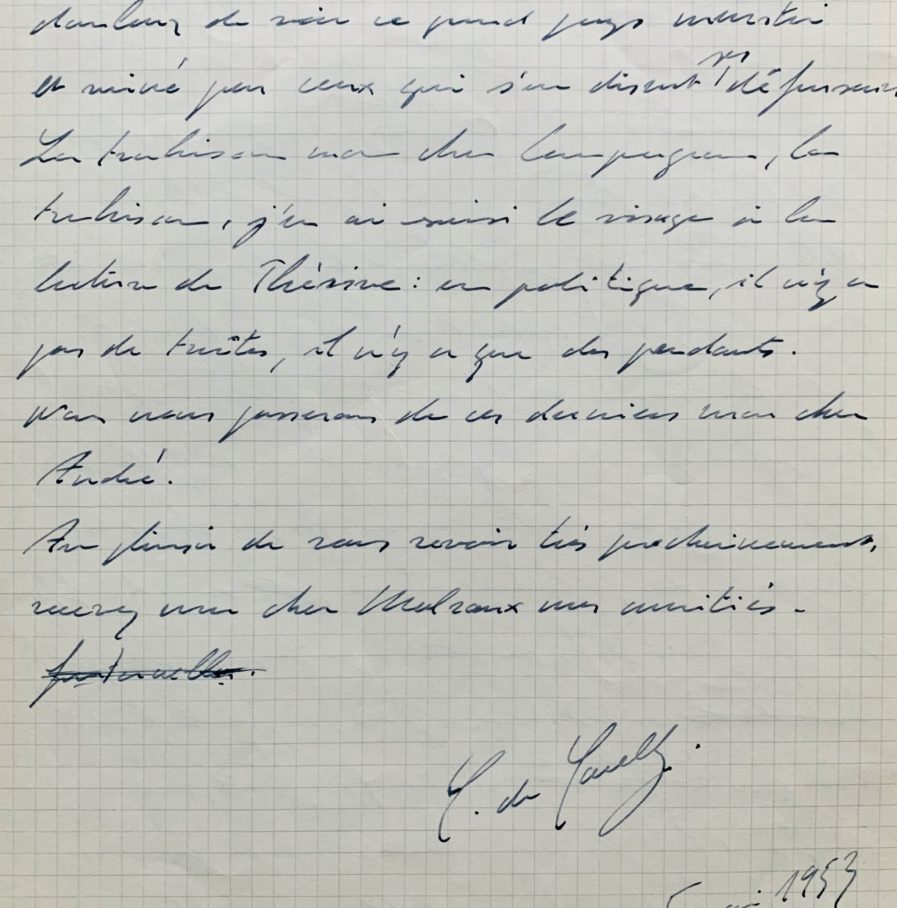 douleur de voir ce grand pays meurtri
et miné par ceux qui s'en disent ses défenseurs
La trahison mon cher compagnon, la
trahison, j'en ai saisi le visage à la
lecture de Thérive : en politique, il n'y a
pas de traîtres, il n'y a que des perdants.
nous passerons de ces derniers mon cher
André.
Au plaisir de vous revoir très prochainement,
recevez mon cher Malraux mes amitiés.
fraternelles.
de
mai 1953